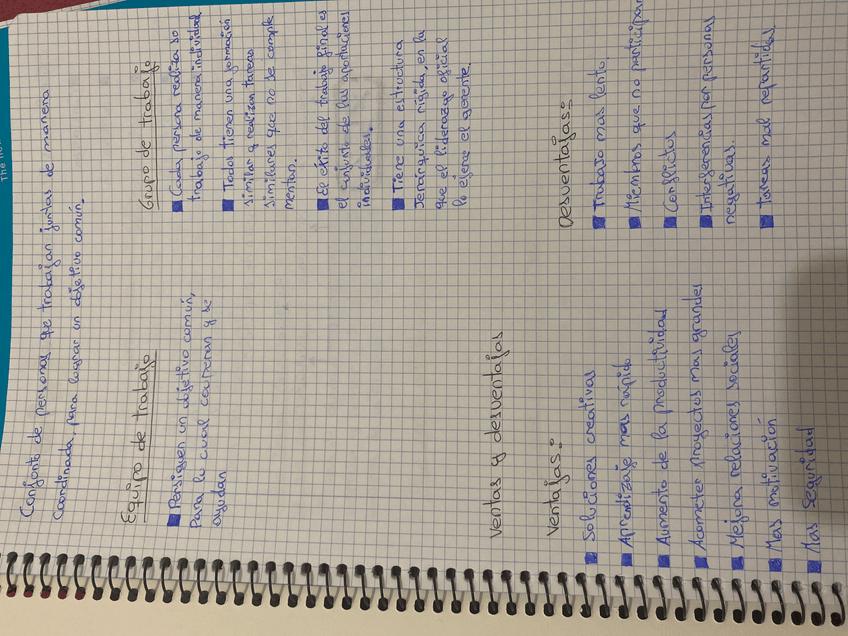 Conjunto de personas que trabajan juntas de manera
Coordinada, para lograr un objetivo común.
Equipo de trabajo
Persiguen un objetivo común,
para lo cual cooperan y se
ayudan
Grupo de trabajo
Cada persona realiza su
trabajo de manera individual
Todos tienen una formación
similar y realizan tareas
similares que no se comple
mentan.
El éxito del trabajo final es
el conjunto de las aportaciones
individuales.
Tiene una estructura
Jerárquica rígida, en la
que el liderazgo oficial
lo ejerce el gerente.
Ventas y desventajas
Ventajas:
Soluciones creativas
Aprendizaje mas rápido
Aumento de la productividad
Acometer Proyectos mas grandes
Mejora relaciones sociales
Mas motivación
Mas seguridad
Desventajas:
Trabajo mas lento.
Miembros que no participan
Conflictos
Interferencias por personas
negativas.
tareas mal repartidas.